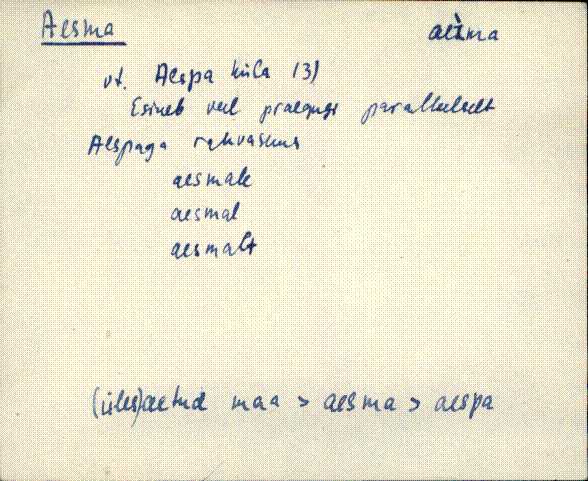 Aesma aèsma
vt. Aespa küla 13)
Esineb veel praegugi paralleelselt
Aespaga rahvasuus
aesmale
aesmal
aesmalt
(üles)aetud maa > aesma > aespa